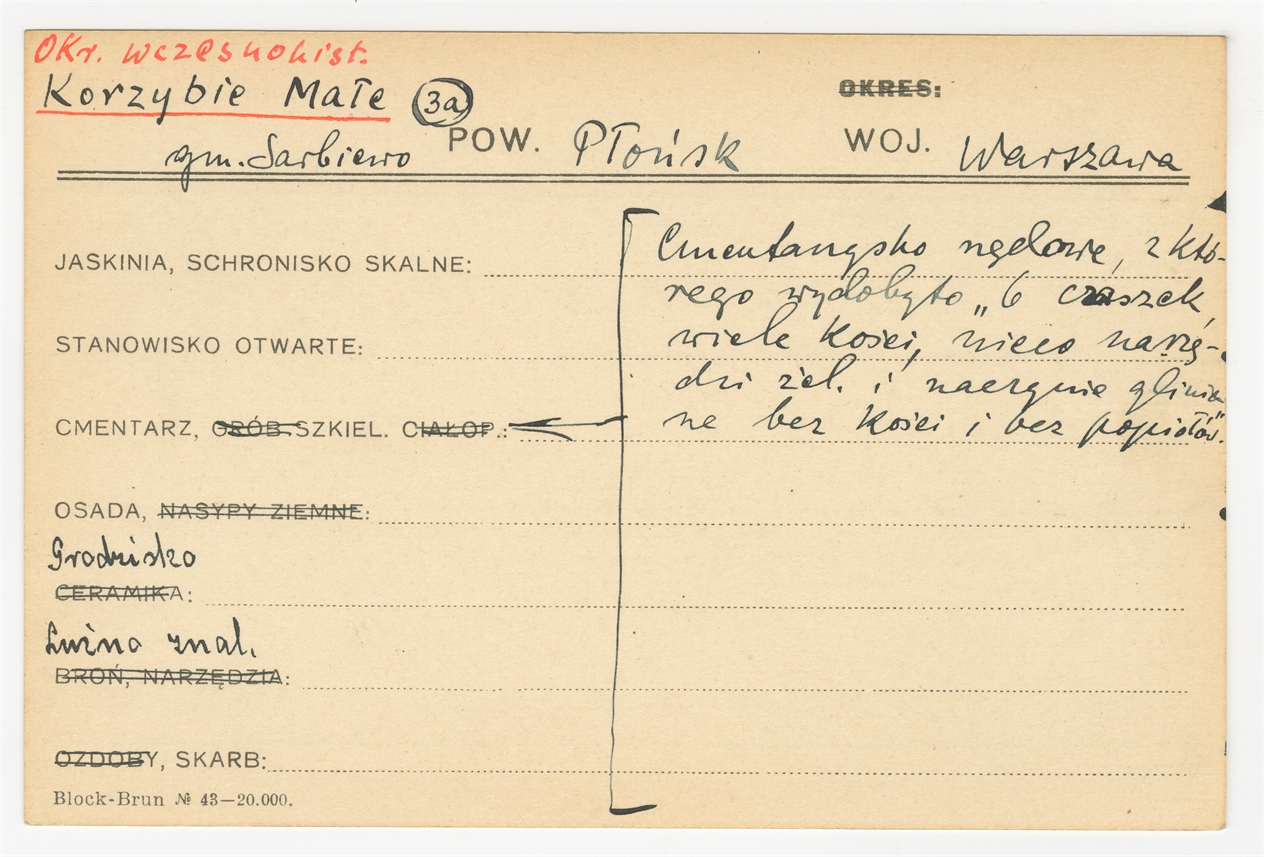 Okr. wczesnohist.
Korzybie Małe (3a)
OKRES:
gm. Sarbiewo POW. Płońsk WOJ. Warszawa
JASKINIA, SCHRONISKO SKALNE:
Cmentarzysko rzędowe, z któ-
rego wydobyto „6 czaszek,
STANOWISKO OTWARTE:
wiele kości, nieco narzę-
dzi żel. i naczynie glinia-
CMENTARZ, GRÓB SZKIEL. CIAŁOP.:
ne bez kości i bez popiołów".
OSADA, NASYPY ZIEMNE:
Grodzisko
CERAMIKA:
Luźne znal.
BROŃ, NARZĘDZIA:
OZDOBY, SKARB:
Block-Brun № 43—20.000.